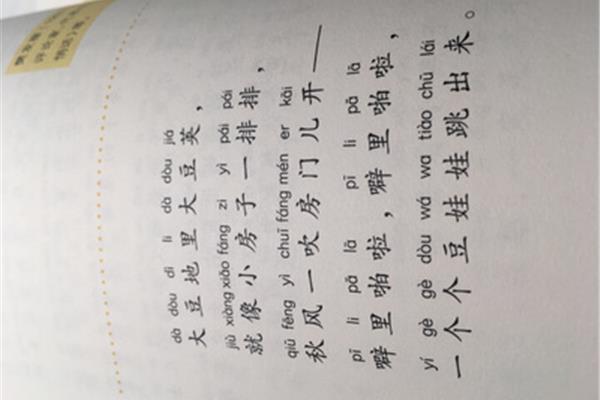 dà dòu dì li dà dòu jiá
大豆地里大豆荚，
jiù xiàng xiǎo fáng zi yì pái pái
就像小房子一排排，
qiū fēng yì chuī fáng mén er kāi
秋风一吹房门儿开——
pī li pā lā pī li pā lā
噼里啪啦，噼里啪啦，
yí gè gè dòu wá wa tiào chū lái
一个个豆娃娃跳出来。